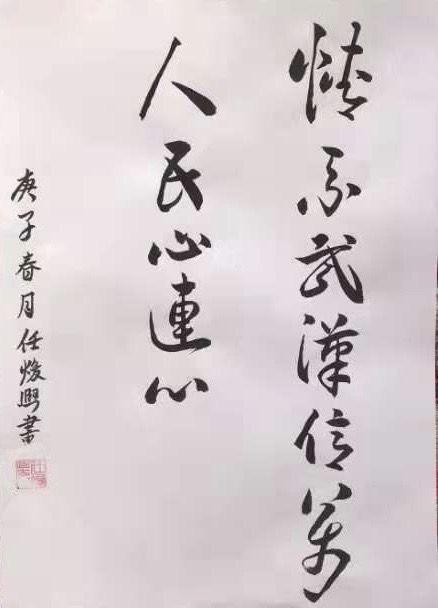 情系武漢億萬
人民心連心
庚子春月任焌興書